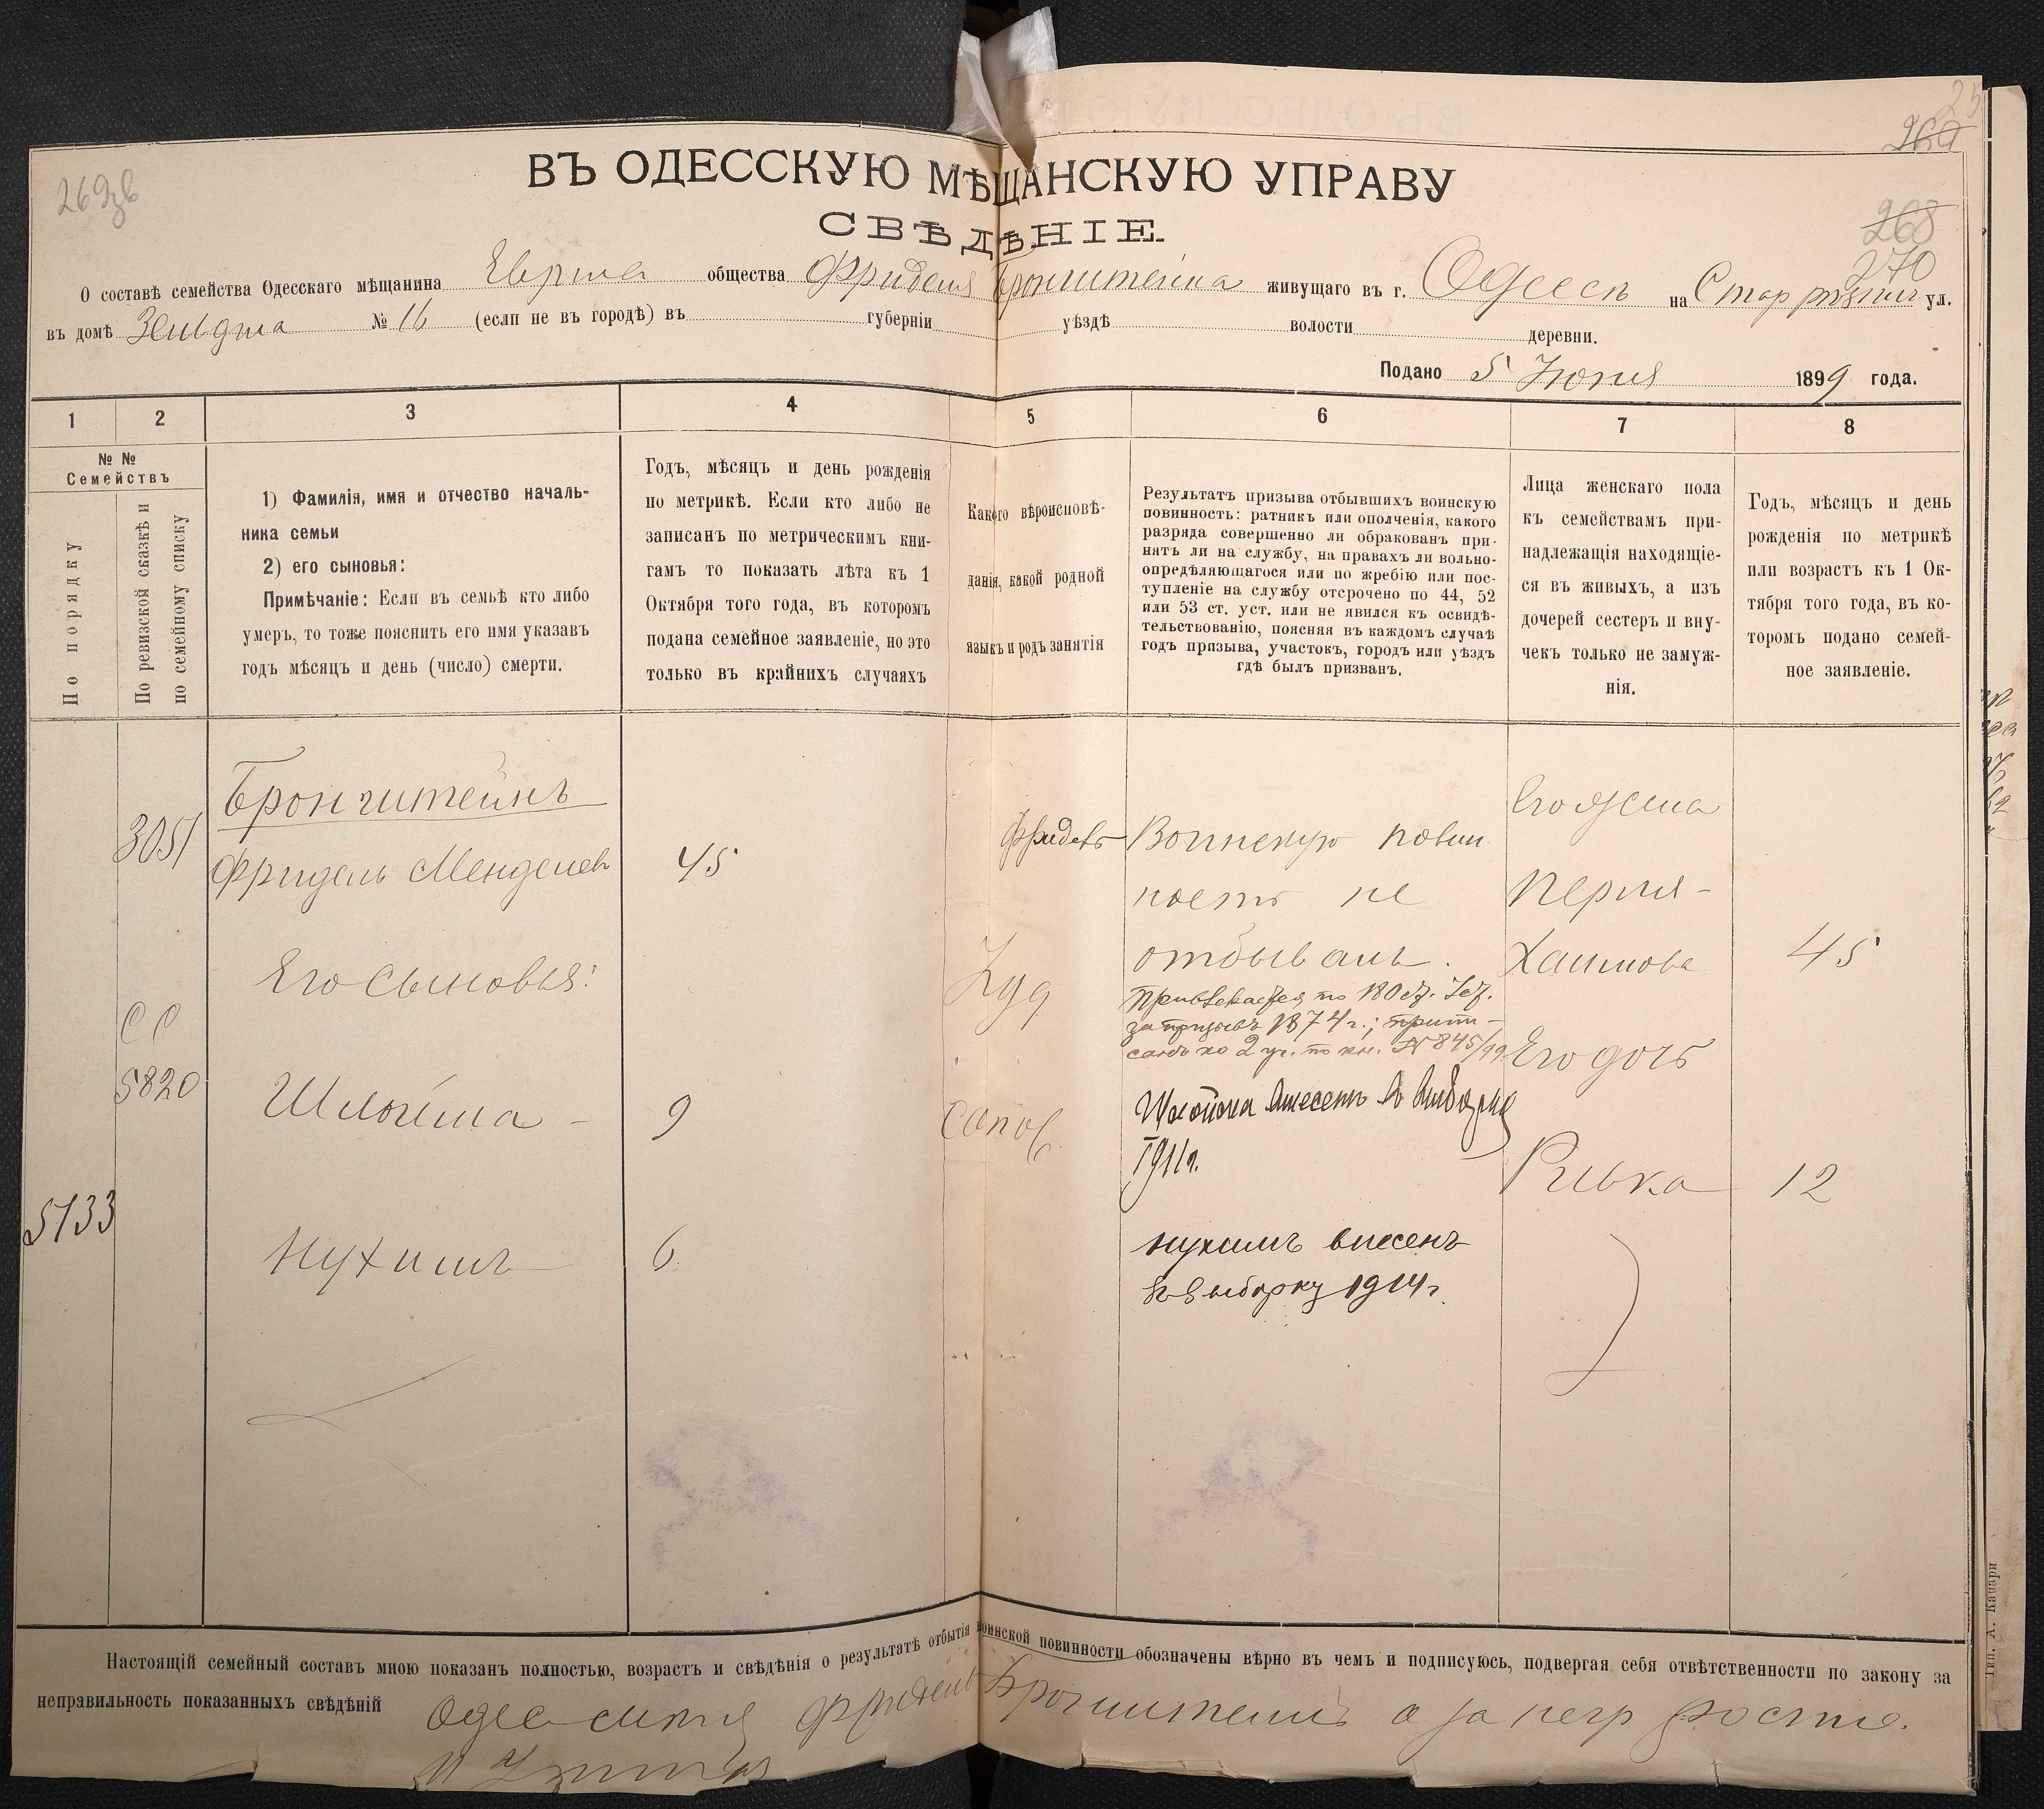 269зв
25
269
ВЪ ОДЕССКУЮ МѢЩАНСКУЮ УПРАВУ
СВѢДѢНІЕ.
268
270
О составѣ семейства Одесскаго мѣщанина Еврея общества Фриделя Бронштейна живущаго въ г. Одессѣ на Стар рѣзнич ул.
въ домѣ № 16 (если не въ городѣ) въ губерніи уѣздѣ волости деревни.
Подано 5 Июня 1899 года.
1 2 3 4 5 6 7 8
№ №
Семействъ
По порядку
По ревизской сказкѣ и
по семейному списку
1) Фамилія, имя и отчество началь-
ника семьи
2) его сыновья:
Примѣчаніе: Если въ семьѣ кто либо
умеръ, то тоже пояснить его имя указавъ
годъ мѣсяцъ и день (число) смерти.
Годъ, мѣсяцъ и день рожденія
по метрикѣ. Если кто либо не
записанъ по метрическимъ кни-
гамъ то показать лѣта къ 1
Октября того года, въ которомъ
подана семейное заявленіе, но это
только въ крайнихъ случаяхъ
Какого вѣроисповѣ-
данія, какой родной
языкъ и родъ занятія
Результатъ призыва отбывшихъ воинскую
повинность: ратникъ или ополченія, какого
разряда совершенно ли обракованъ при-
нятъ ли на службу, на правахъ ли вольно-
опредѣляющагося или по жребію или пос-
тупленіе на службу отсрочено по 44, 52
или 53 ст. уст. или не явился къ освидѣ-
тельствованію, поясняя въ каждомъ случаѣ
годъ призыва, участокъ, городъ или уѣздъ
гдѣ былъ призванъ.
Лица женскаго пола
къ семействамъ при-
надлежащія находящіе-
ся въ живыхъ, а изъ
дочерей сестеръ и вну-
чекъ только не замуж-
нія.
Годъ, мѣсяцъ и день
рожденія по метрикѣ
или возрастъ къ 1 Ок-
тября того года, въ ко-
торомъ подано семей-
ное заявленіе.
Бронштейнъ
3051 Фридель Менделев 45
Фридель
Воинскую повин
ность не
отбывалъ.
Его жена
Перля-
Хаимова 45
Его сыновья:
Іуд
Привлекается по 180 ст. Уст.
за призывъ 1874 г.; припи-
санъ ко 2 уч. по кн. № 845/99.
Его дочь
СС
5820 Шлойма - 9
Сапож.
Шлойма внесенъ въ выборку
1911 г.
Ривка 12
5133
Нухимъ 6.
Нухимъ внесенъ
въ выборку 1914 г.
Настоящій семейный составъ мною показанъ полностью, возрастъ и свѣдѣнія о результатѣ отбытія воинской повинности обозначены вѣрно въ чемъ и подписуюсь, подвергая себя отвѣтственности по закону за
неправильность показанныхъ свѣдѣній
Фридель Бронштейнъ а за негр
Тип. А. Качари